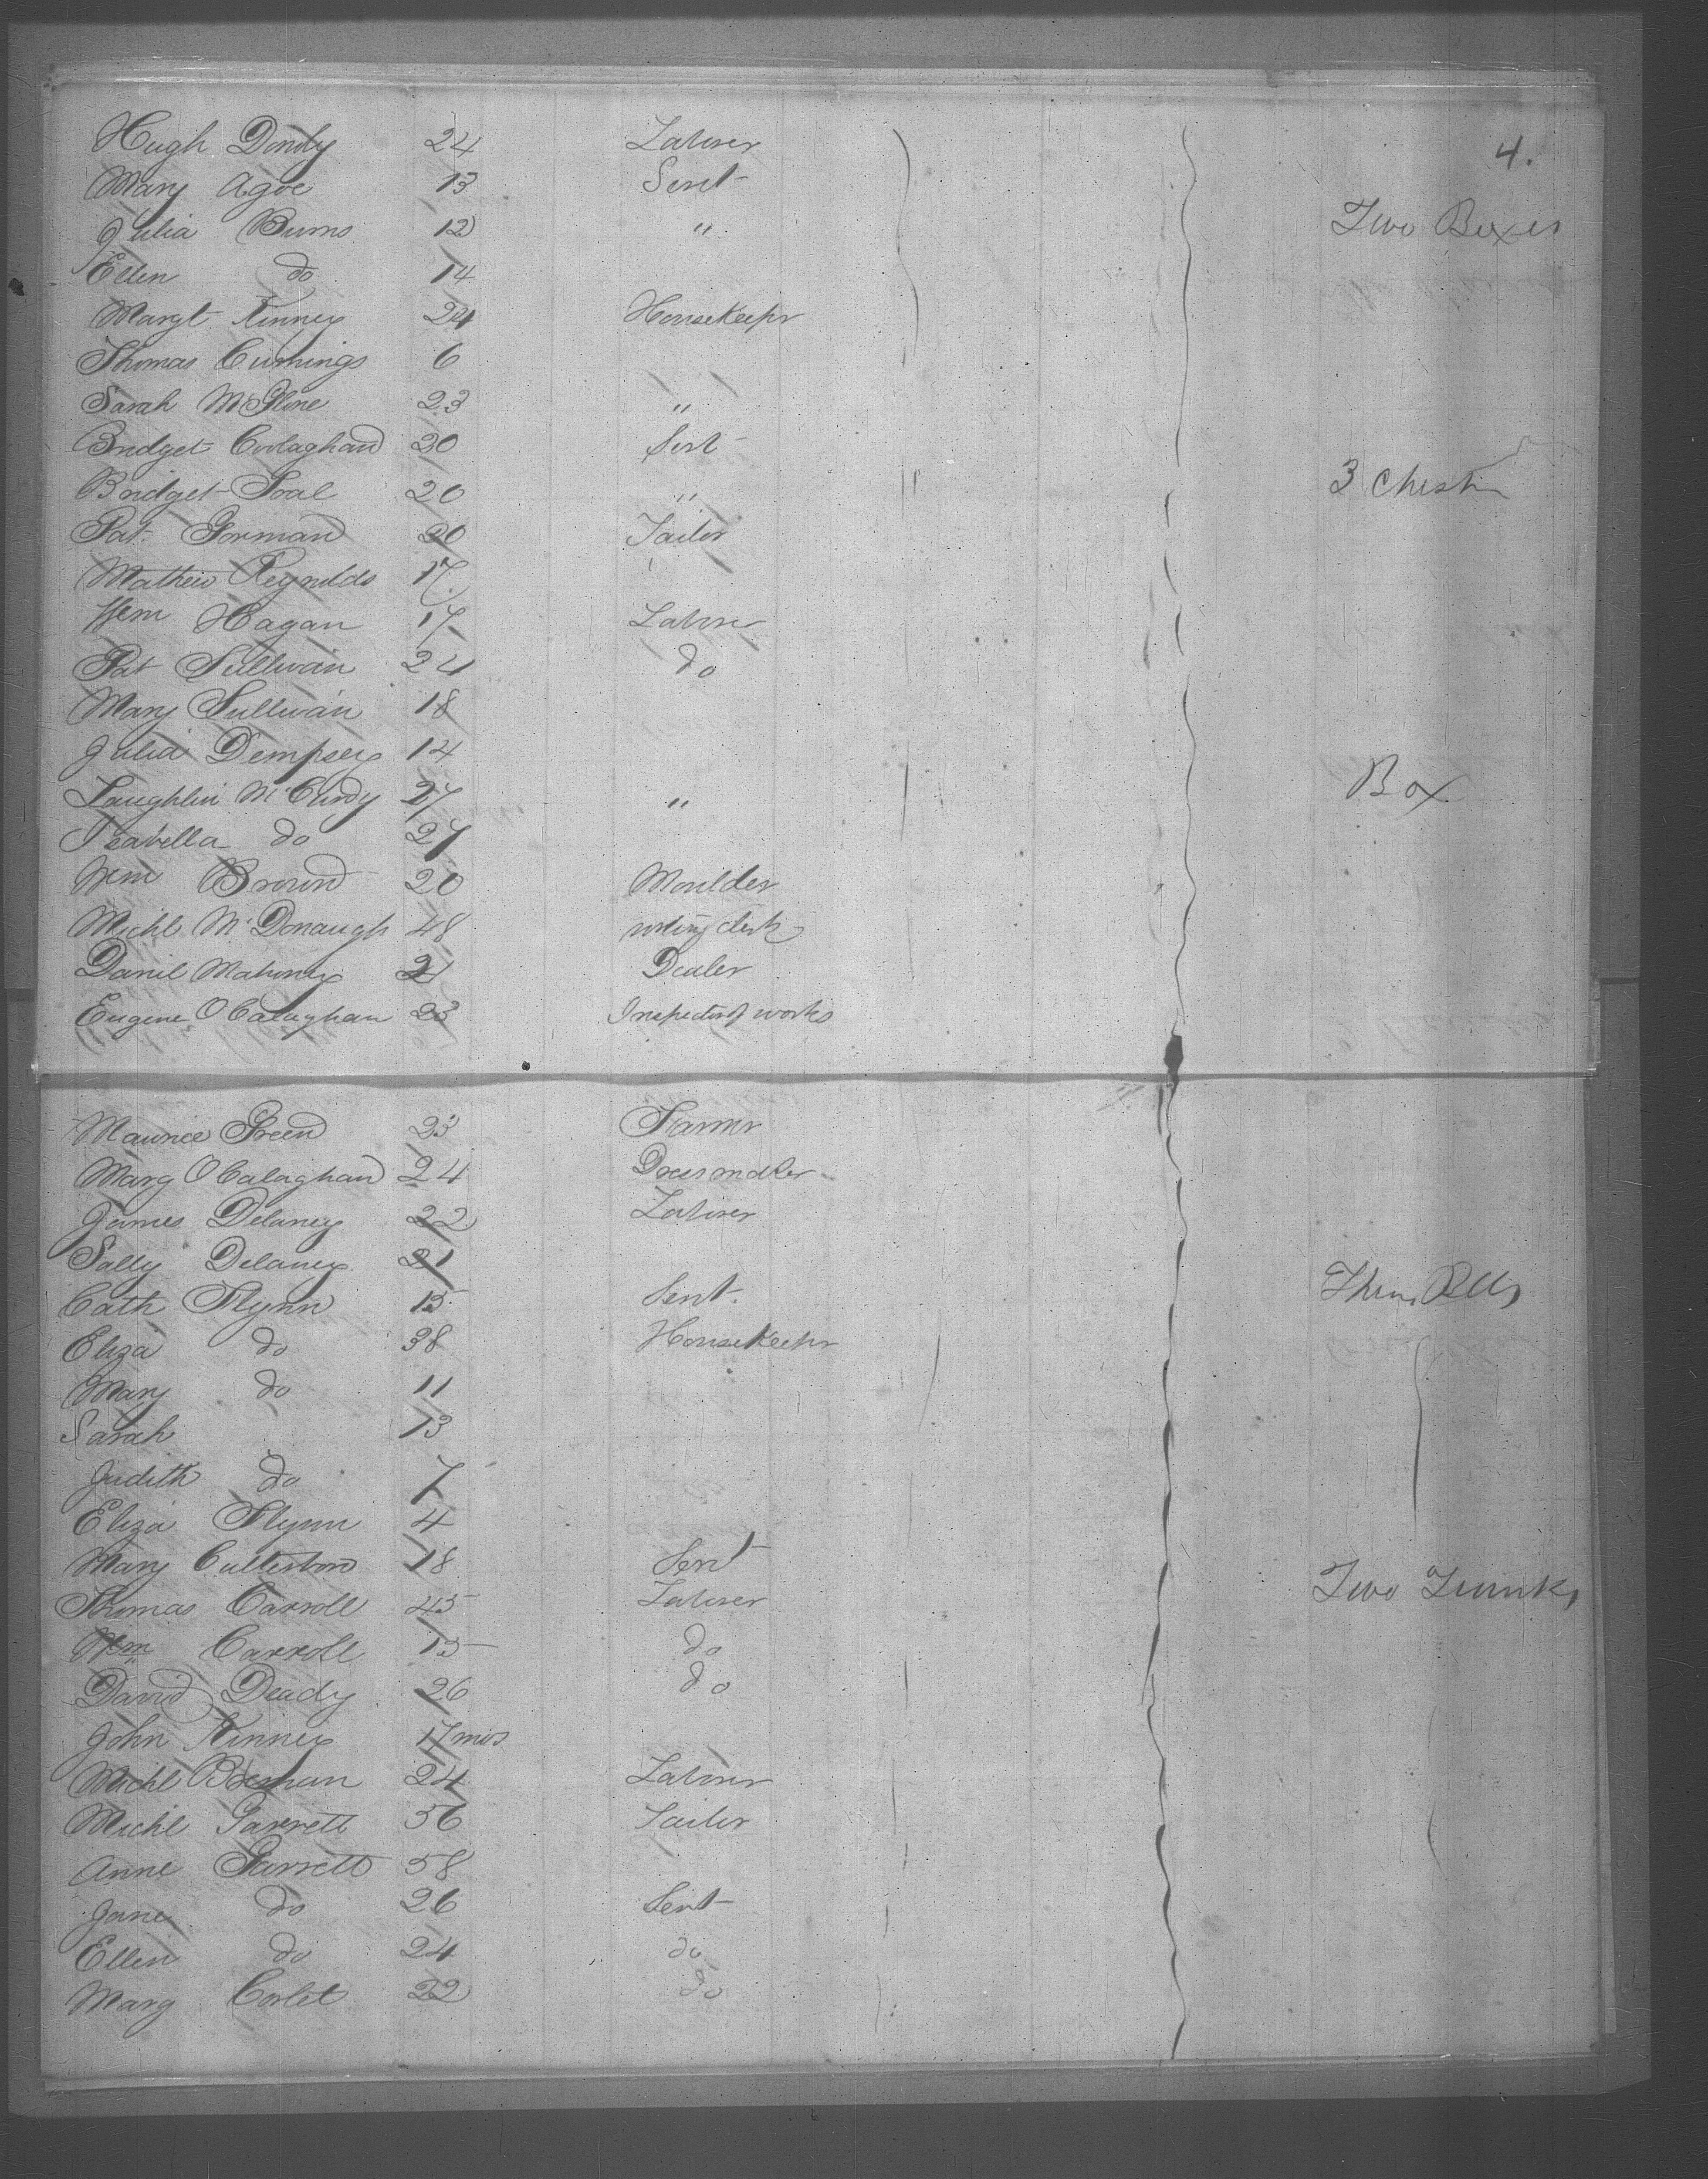 4.
Hugh Dondy 24 Laborer
Mary Agoe 13 Servt
Julia Burns 12 " Two Boxes
Ellen do 14
Margt. Kinney 24 Housekeepr
Thomas Cumings 6
Sarah McGlone 23 "
Bridget Coolaghan 20 Servt
Bridget 20 " 3 Chests
Pat. Gorman 20 Tailor
Mathew Reynolds 17
Wm Hagan 17 Laborer
Pat Sullivan 24 do
Mary Sullivan 18
Julia Dempsey 14
Laughlin McCurdy 27 " Box
Isabella do 27
Wm Brown 20 Moulder
Michl McDonaugh 48 clerk
Danil Mahoney 21 Dealer
Eugene OCalaghan 23 Inspector of works
Maurice Green 23 Farmr
Marg OCalaghan 24 Dressmaker
James Delaney 22 Laborer
Sally Delaney 21
Cath Flynn 15 Servt. 
Eliza do 38 Housekeepr
Mary do 11
Sarah 13
Judith do 7
Eliza Flynn 4
Mary 18 Servt Two Trunks
Thomas Carroll 45 Laborer
Wm Carroll 15 do
David Deady 26 do
John Kinney 17 mos
Michl Bresnan 24 Laborer
Michl Garrett 56 Tailor
Anne Garrett 58
Jane do 26 Servt
Ellen do 24 do
Marg Corlet 22 do